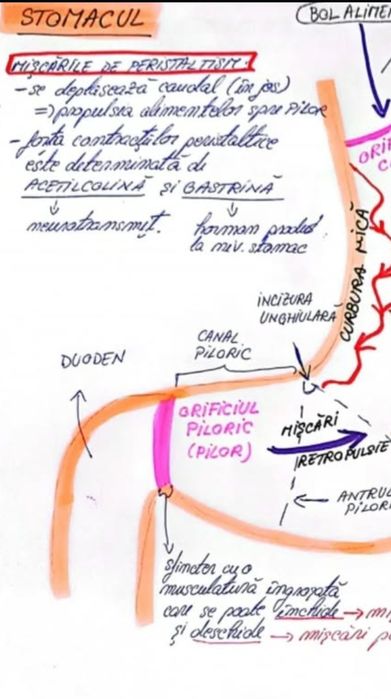 STOMACUL
BOL ALIME
MIȘCĂRILE DE PERISTALTISM:
- se deplasează caudal (în jos)
=> propulsia alimentelor spre PILOR
- forța contracțiilor peristaltice
este determinată de
ACETILCOLINĂ și GASTRINĂ
neurotransmiț.
hormon produs
la niv. stomac
ORIFI
C
CURBURA MICĂ
INCIZURA
UNGHIULARĂ
CANAL
PILORIC
DUODEN
ORIFICIUL
PILORIC
(PILOR)
MIȘCĂRI
RETROPULSIE
ANTRUL
PILORI
sfincter cu o
musculatură îngroșată
care se poate închide → mi
și deschide → mișcări p